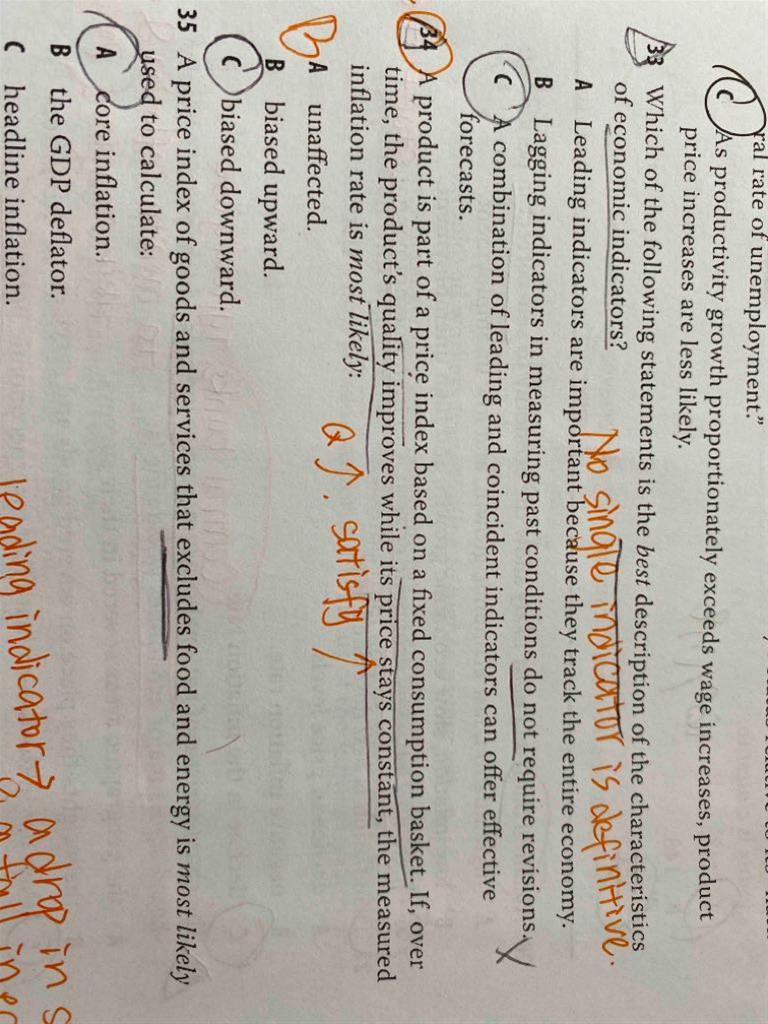 ral rate of unemployment."
C As productivity growth proportionately exceeds wage increases, product
price increases are less likely.
33 Which of the following statements is the best description of the characteristics
of economic indicators?
No single indicator is definitive.
A Leading indicators are important because they track the entire economy.
B Lagging indicators in measuring past conditions do not require revisions.
C A combination of leading and coincident indicators can offer effective
forecasts.
34 A product is part of a price index based on a fixed consumption basket. If, over
time, the product's quality improves while its price stays constant, the measured
inflation rate is most likely:
Q ↑. satisfy ↑
B
A unaffected.
B biased upward.
C biased downward.
35 A price index of goods and services that excludes food and energy is most likely
used to calculate:
A core inflation.
B the GDP deflator.
C headline inflation.
leading indicator → a drop in